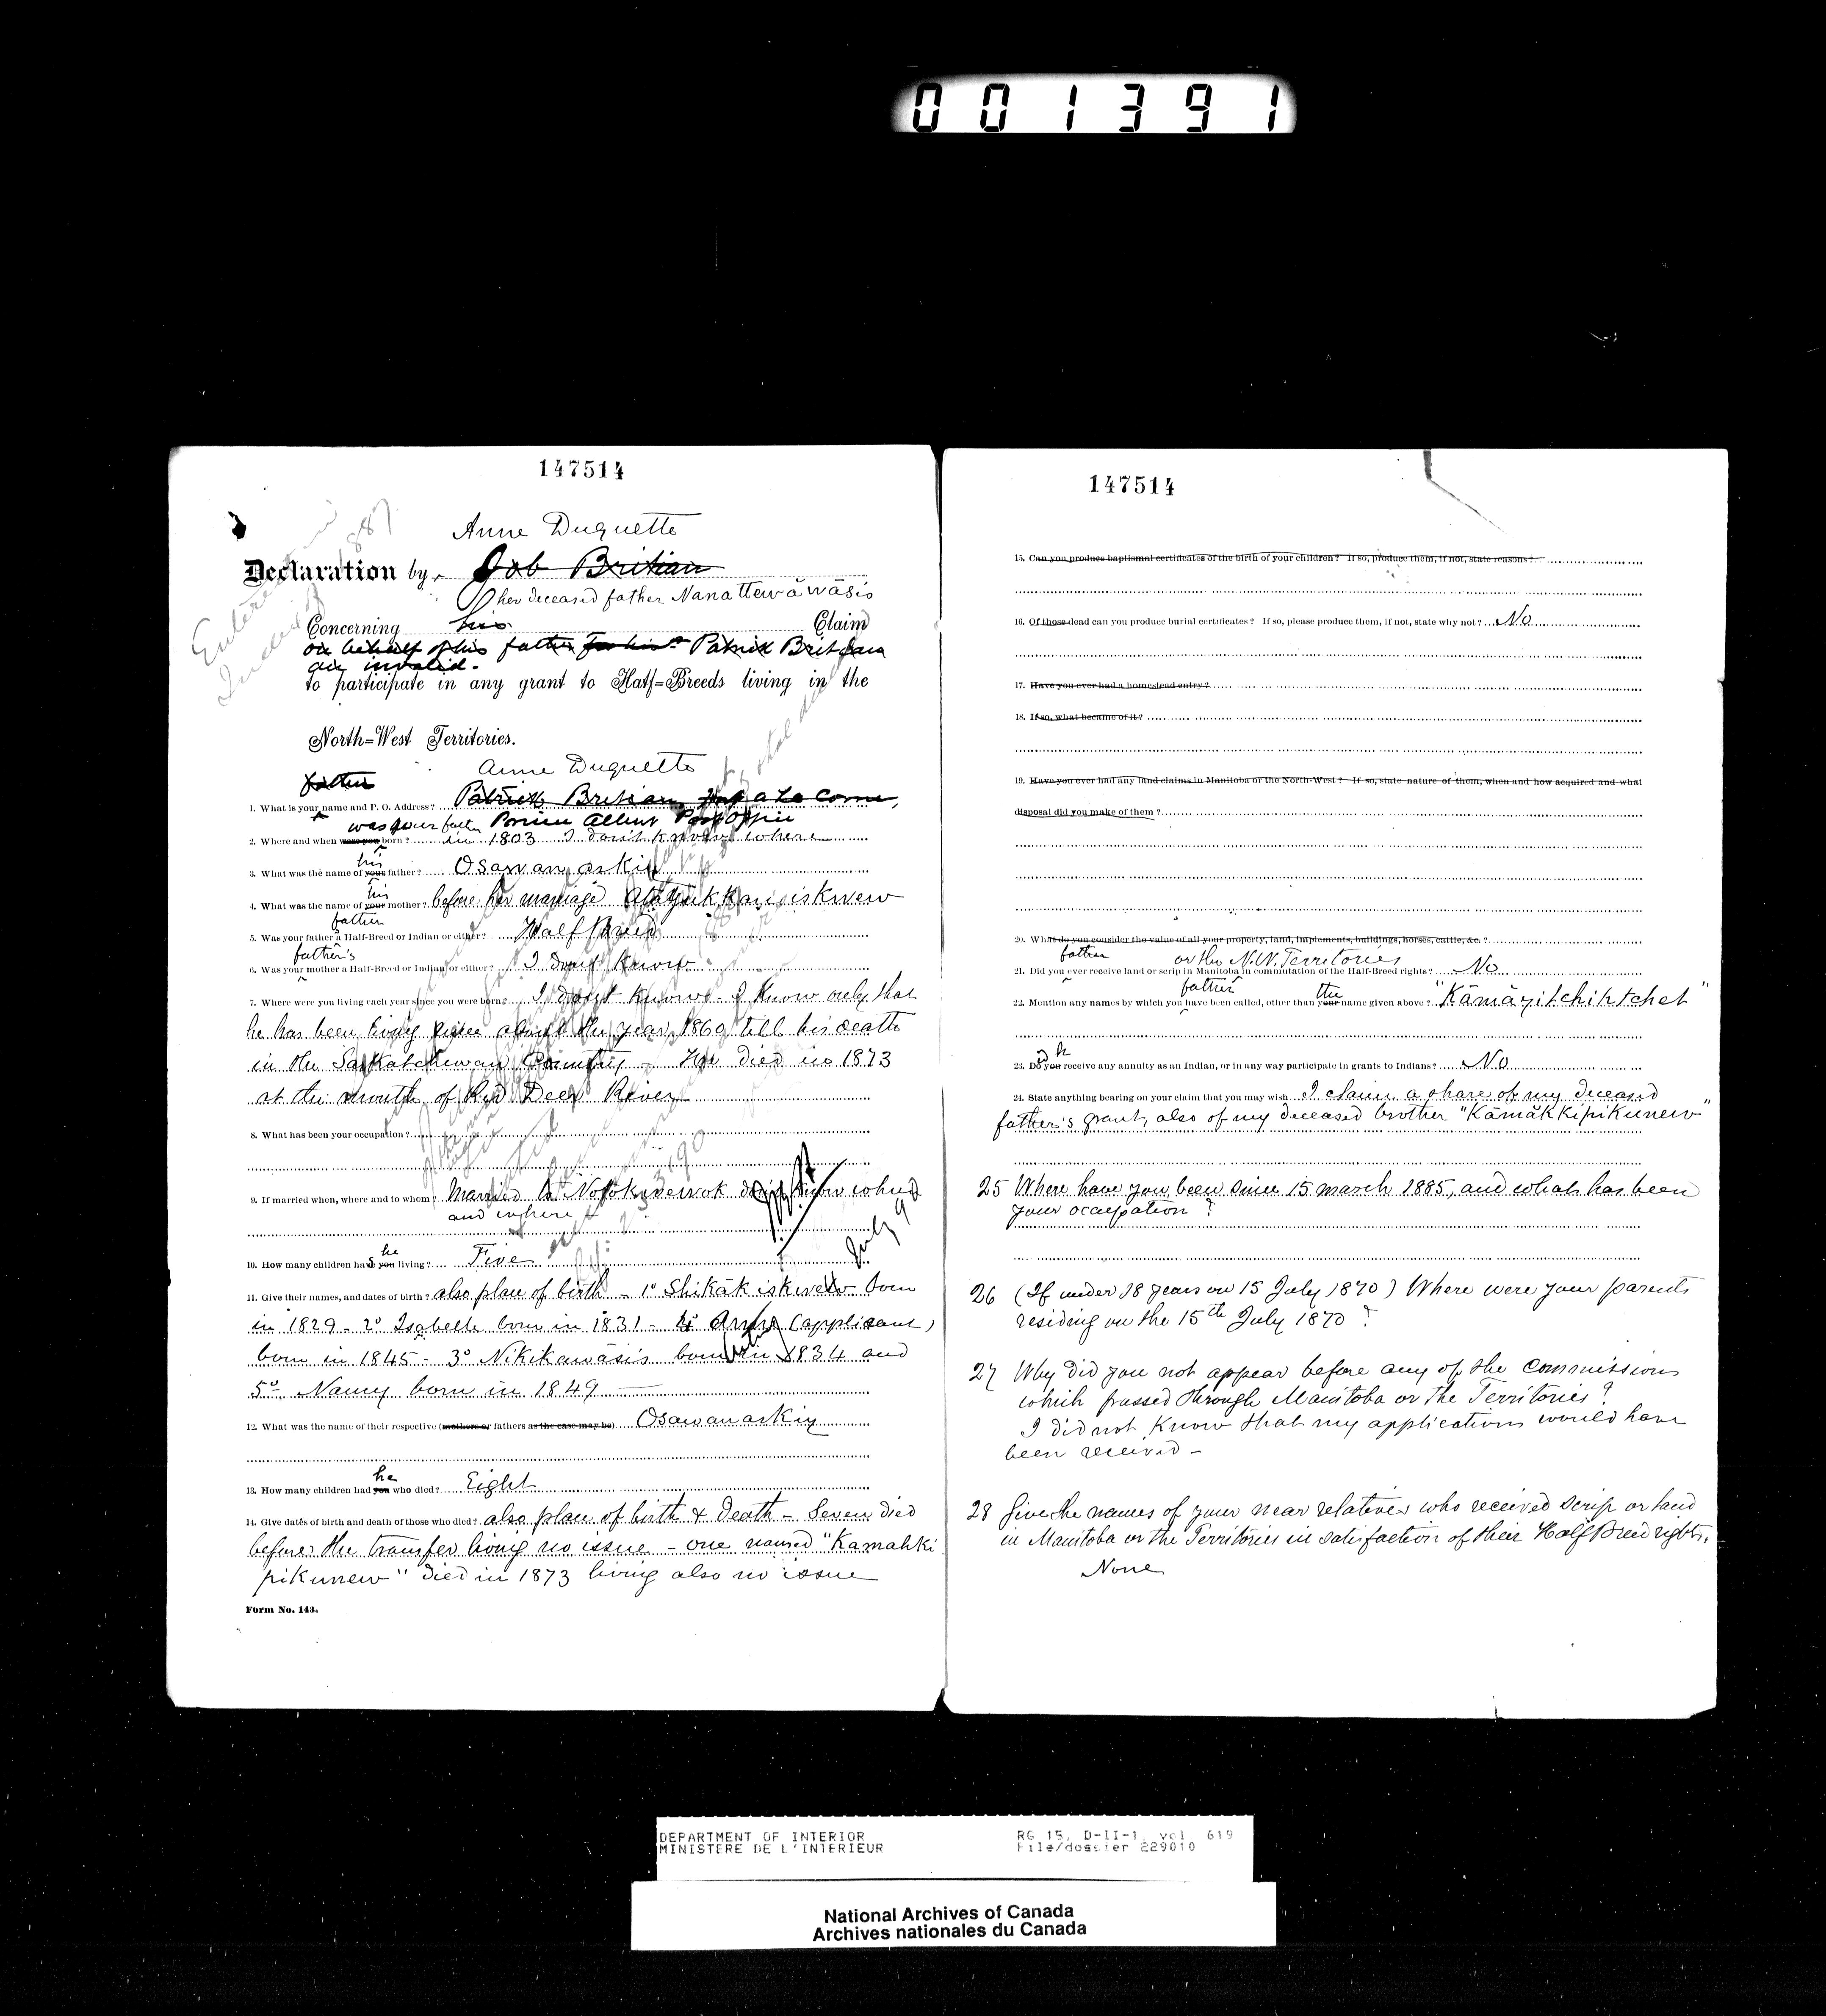 001391
147514
Anne Duquette
Declaration by Job Britian
her deceased father Nanattewāwāsis
Concerning his Claim
on behalf of his father for his Patrick Britian
an invalid.
to participate in any grant to Half=Breeds living in the
North=West Territories.
Father Anne Duquette
1. What is your name and P. O. Address? Patrick Britian
was your father Prince Albert Post Office
2. Where and when were you born? in 1803 I don't know where
his
3. What was the name of your father? Osawanaskiy
his
4. What was the name of your mother? before her marriage
father
5. Was your father a Half-Breed or Indian or either? Half Breed
father's
6. Was your mother a Half-Breed or Indian or either? I don't know
7. Where were you living each year since you were born? I don't know - I know only that
he has been living since about the year 1860 till his death
in the Saskatchewan Country - He died in 1873
at the mouth of Red Deer River
8. What has been your occupation?
9. If married when, where and to whom? Married to Notokwewok don't know when
and where
July 90
he
10. How many children have you living? Five
11. Give their names, and dates of birth? also place of birth - 1° Shikākiskwew born
in 1829 - 2° Isabelle born in 1831 - 4° Anne (applicant)
born in 1845 - 3° Nikikawāsis born in 1834 and
5° Nancy born in 1849
12. What was the name of their respective (mothers or fathers as the case may be) Osawanaskiy
he
13. How many children had you who died? Eight
14. Give dates of birth and death of those who died? also place of birth & death - Seven died
before the transfer living no issue - one named "Kamahki
pikunew" died in 1873 living also no issue
Form No. 143.
147514
15. Can you produce baptismal certificates of the birth of your children? If so, produce them, if not, state reasons?
16. Of those dead can you produce burial certificates? If so, please produce them, if not, state why not? No
17. Have you ever had a homestead entry?
18. If so, what became of it?
19. Have you ever had any land claims in Manitoba or the North-West? If so, state nature of them, when and how acquired and what
disposal did you make of them?
20. What do you consider the value of all your property, land, implements, buildings, horses, cattle, &c.?
father or the N.W. Territories
21. Did you ever receive land or scrip in Manitoba in commutation of the Half-Breed rights? No
father the
22. Mention any names by which you have been called, other than your name given above? "Kāmāyitchitchet"
23. Do you receive any annuity as an Indian, or in any way participate in grants to Indians? No
24. State anything bearing on your claim that you may wish I claim a share of my deceased
father's grant, also of my deceased brother "Kāmākkipikunew"
25 Where have you been since 15 march 1885, and what has been
your occupation?
26 (If under 18 years on 15 July 1870) Where were your parents
residing on the 15th July 1870?
27 Why did you not appear before any of the Commissions
which passed through Manitoba or the Territories?
I did not know that my application would have
been received -
28 Give the names of your near relatives who received scrip or land
in Manitoba or the Territories in satisfaction of their Half Breed rights,
None
DEPARTMENT OF INTERIOR
MINISTERE DE L'INTERIEUR
RG 15, D-II-1, vol 619
File/dossier 229010
National Archives of Canada
Archives nationales du Canada